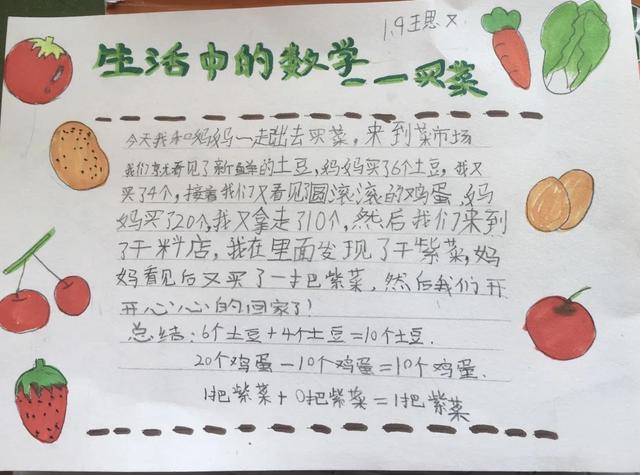 1.9 王思文
生活中的数学
——买菜
今天我和妈妈一起出去买菜,来到菜市场
我们首先看见了新鲜的土豆,妈妈买了6个土豆,我又
买了4个,接着我们又看见圆滚滚的鸡蛋,妈
妈买了20个,我又拿走了10个,然后我们来到
了干料店,我在里面发现了干紫菜,妈
妈看见后又买了一把紫菜,然后我们开
开心心的回家了!
总结:6个土豆+4个土豆=10个土豆.
20个鸡蛋-10个鸡蛋=10个鸡蛋.
1把紫菜+0把紫菜=1把紫菜